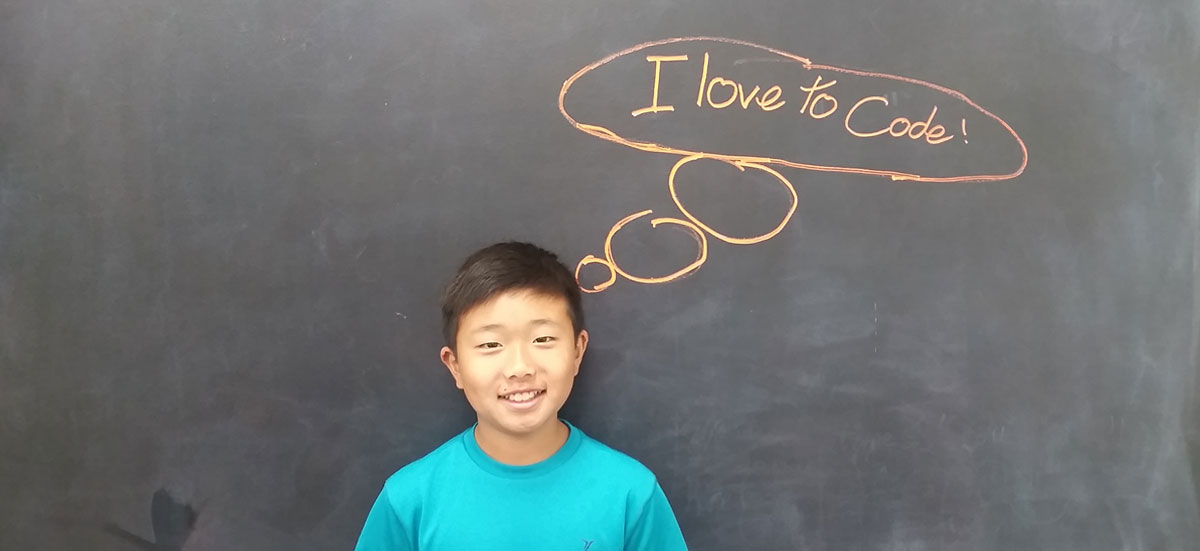 I love to Code!